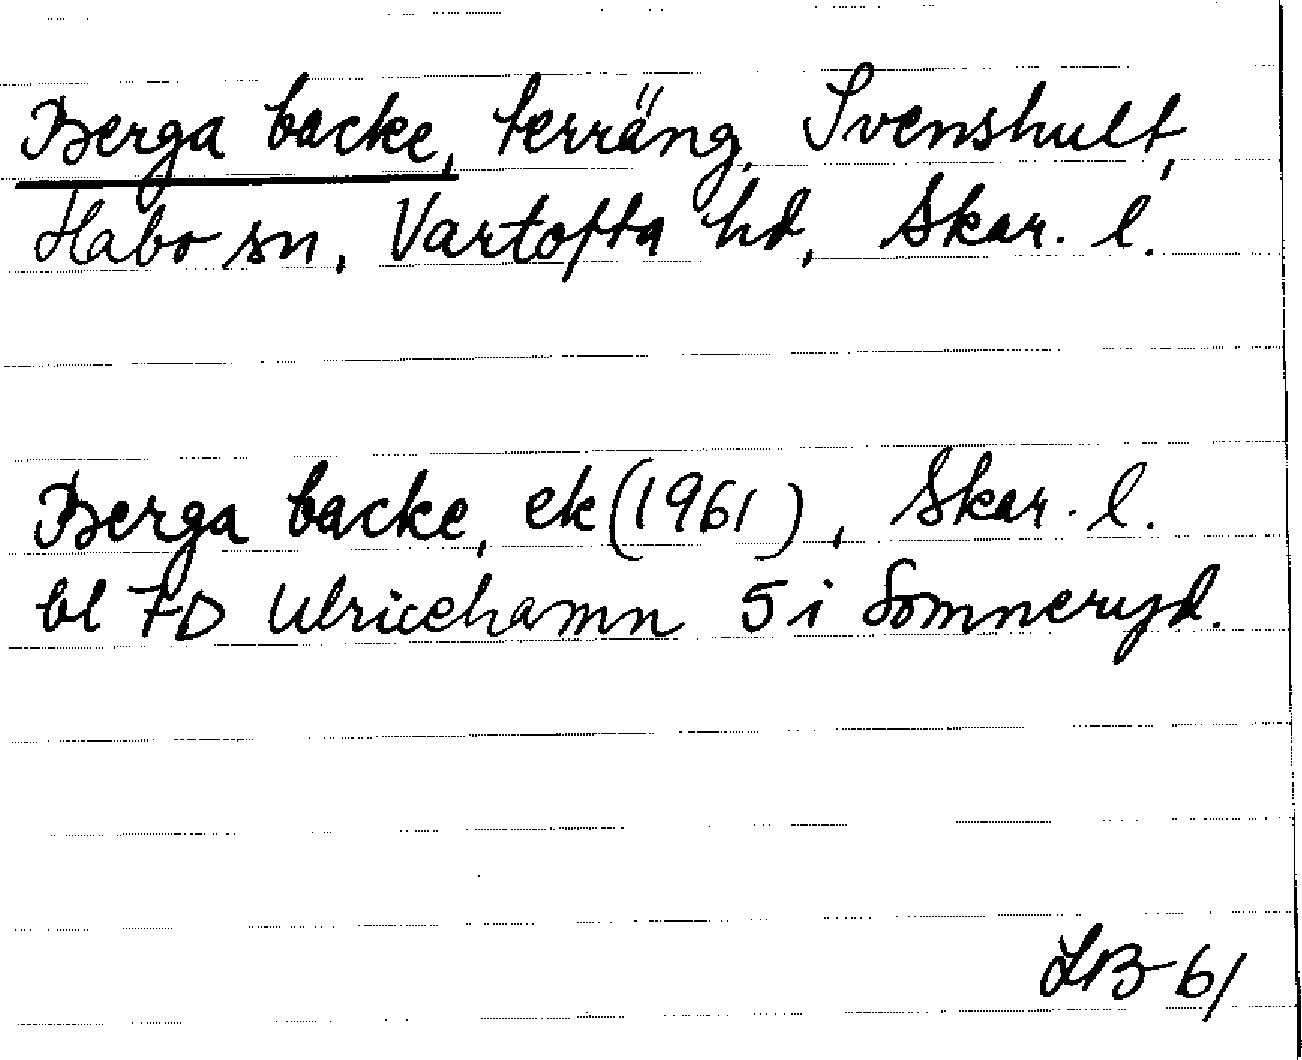 Berga backe, terräng, Svenshult,
Habo sn, Vartofta hd, Skar. l.
Berga backe, ek (1961), Skar. l.
bl 7D Ulricehamn 5 i Sömneryd.
LB-61